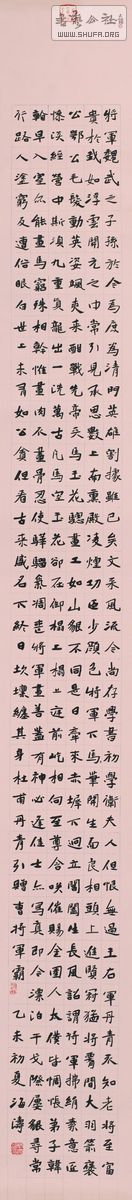 WWW.SHUFA.ORG
將軍魏武之子孫於今為庶為清門英雄割據雖已矣文采風流今尚存學書初學衛夫人但恨無過王右軍丹青不知老將至富
貴於我如浮雲開元之中常引見承恩數上南熏殿凌煙功臣少顏色將軍下筆開生面良相頭上進賢冠猛將腰間大羽箭褒
公鄂公毛髮動英姿颯爽來酣戰先帝天馬玉花驄畫工如山貌不同是日牽來赤墀下迥立閶闔生長風詔謂將軍拂絹素意匠
慘淡經營中斯須九重真龍出一洗萬古凡馬空玉花卻在御榻上榻上庭前屹相向至尊含笑催賜金圉人太僕皆惆悵弟子韓
幹早入室亦能畫馬窮殊相幹惟畫肉不畫骨忍使驊騮氣凋喪將軍畫善蓋有神必逢佳士亦寫真即今漂泊干戈際屢貌尋常
行路人塗窮反遭俗眼白世上未有如公貧但看古來盛名下終日坎壈纏其身杜甫丹青引贈曹將軍霸乙未初夏海濤